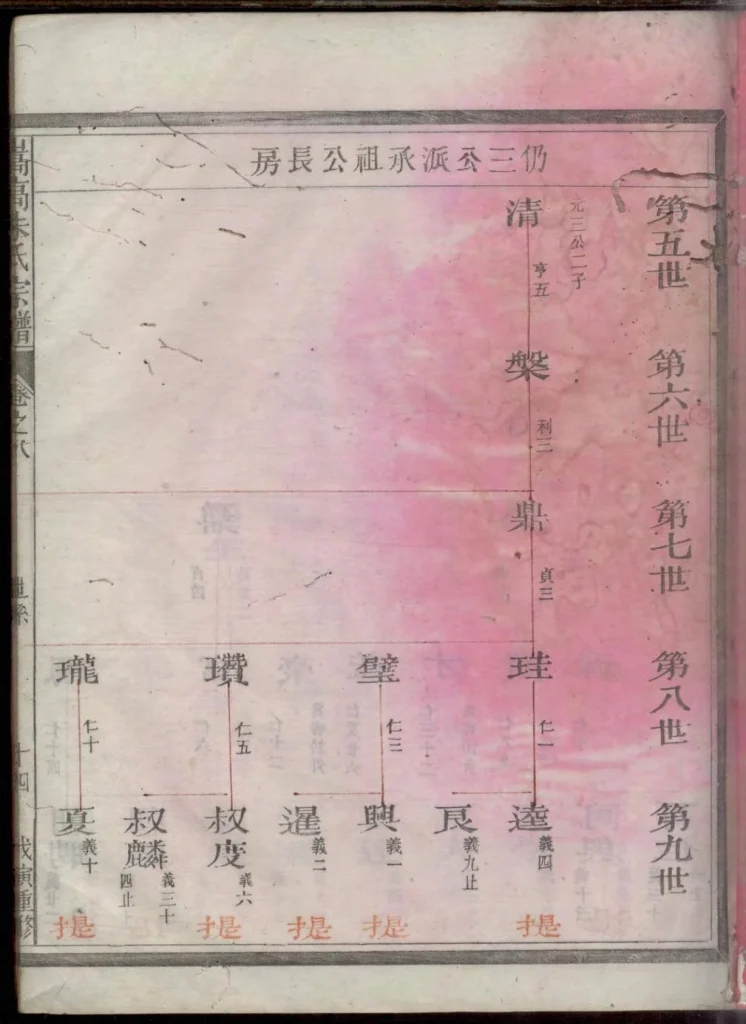 仍三公派承祖公長房
第五世
元三公二子
清
亨五
第六世
槃
利三
第七世
鼎
貞三
第八世
珪
仁一
璧
仁三
瓚
仁五
瓏
仁十
第九世
逵
義四
艮
義九止
興
義一
暹
義二
叔度
義六
叔麟
義三十四止
夏
義十
提
提
提
提
提
嵩高朱氏宗譜
卷之八
世系
十四
戊寅重修